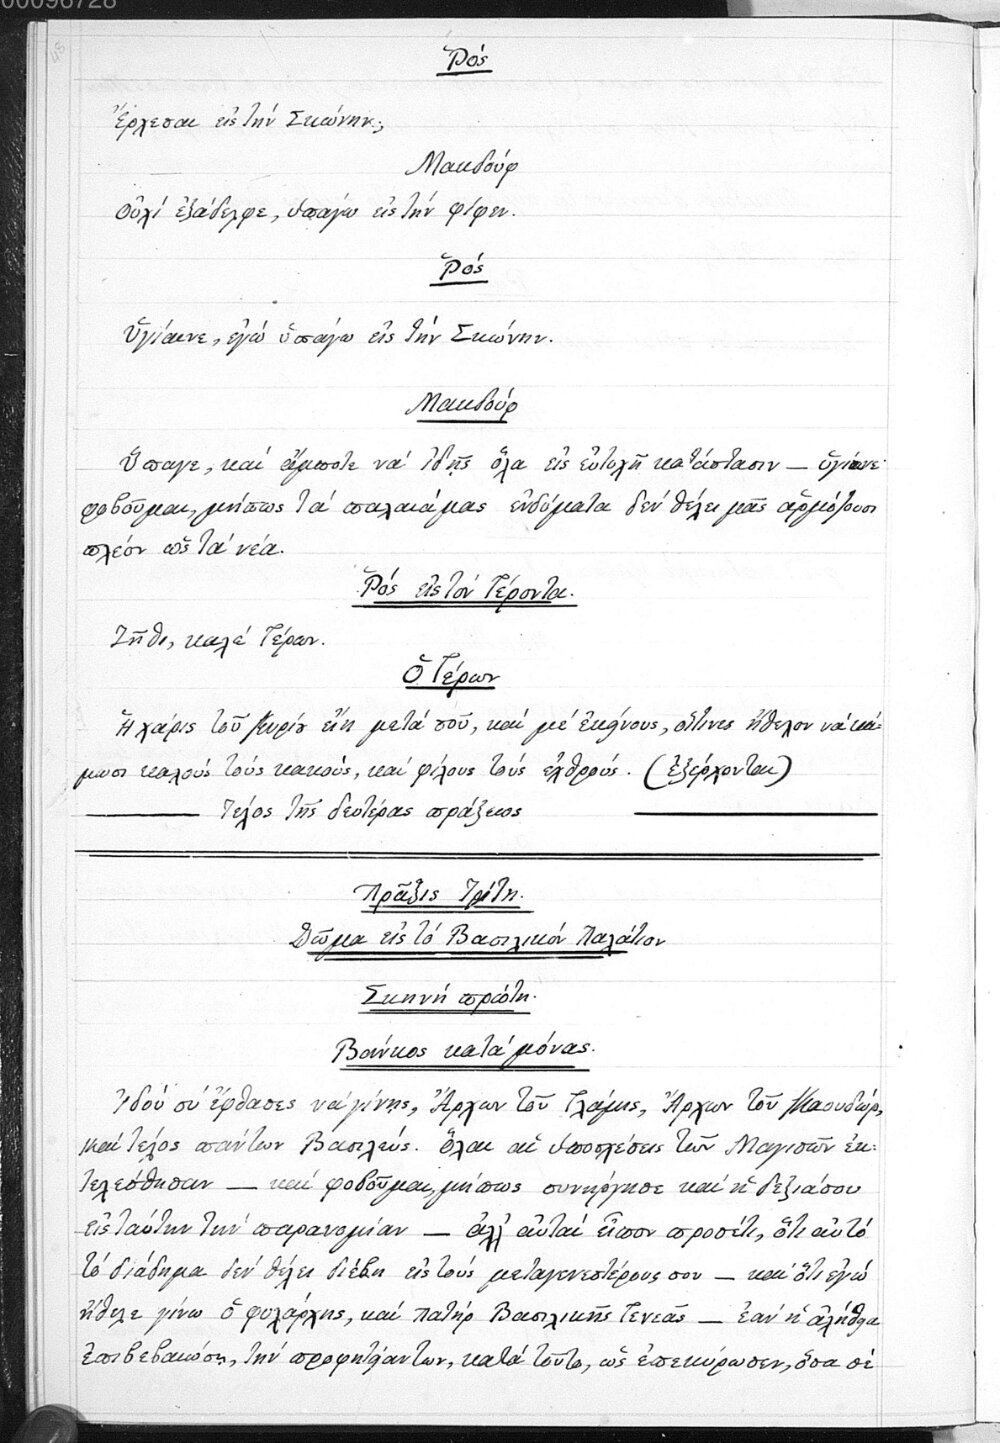 00096728
Ῥός
Ἔρχεσαι εἰς τήν Σκώνην;
Μακδούφ
Οὐχί ἐξάδελφε, ὑπαγω εἰς τήν φίφεν.
Ῥός
Ὑγίαινε, ἐγώ ὑπάγω εἰς τήν Σκώνην.
Μακδούφ
Ὕπαγε, καί ἄμποτε νά ἰδῇς ὅλα εἰς εὐτυχῆ κατάστασιν — ὑγίαινε
φοβοῦμαι, μήπως τά παλαιάμας ἐνδύματα δέν θέλει μᾶς ἁρμόζουσι
πλέον ὡς τά νέα.
Ῥός εἰς τόν Γέροντα.
Ζῆθι, καλέ Γέρων.
Ὁ Γέρων
Ἡ χάρις τοῦ Κυρίου εἴη μετά σοῦ, καί μέ ἐκείνους, οἵτινες ἤθελον νά κά-
μωσι καλούς τούς κακούς, καί φίλους τούς ἐχθρούς. (ἐξέρχονται)
Τέλος τῆς δευτέρας πράξεως
Πρᾶξις Τρίτη.
Δῶμα εἰς τό Βασιλικόν Παλάτιον
Σκηνή πρώτη.
Βάνκος κατά μόνας.
Ἰδού σύ ἔφθασες νά γίνῃς, Ἄρχων τοῦ Γλάμις, Ἄρχων τοῦ Καουδώρ,
καί τέλος πάντων Βασιλεύς. ὅλαι αἱ ὑποσχέσεις τῶν Μαγισσῶν ἐκ-
τελέσθησαν — καί φοβοῦμαι, μήπως συνήργησε καί ἡ δεξιάσου
εἰς ταύτην τήν παρανομίαν — ἀλλ' αὐταί εἶπον προσέτι, ὅτι αὐτό
τό διάδημα δέν θέλει διέβη εἰς τούς μεταγενεστέρους σου — καί ὅτι ἐγώ
ἤθελε γίνω ὁ φυλάρχης, καί πατήρ Βασιλικῆς Γενεᾶς — ἐάν ἡ ἀλήθεια
ἐπιβεβαιώσῃ, τήν προφητείαν των, κατά τοῦτο, ὡς ἐπεκύρωσεν, ὅσα σέ